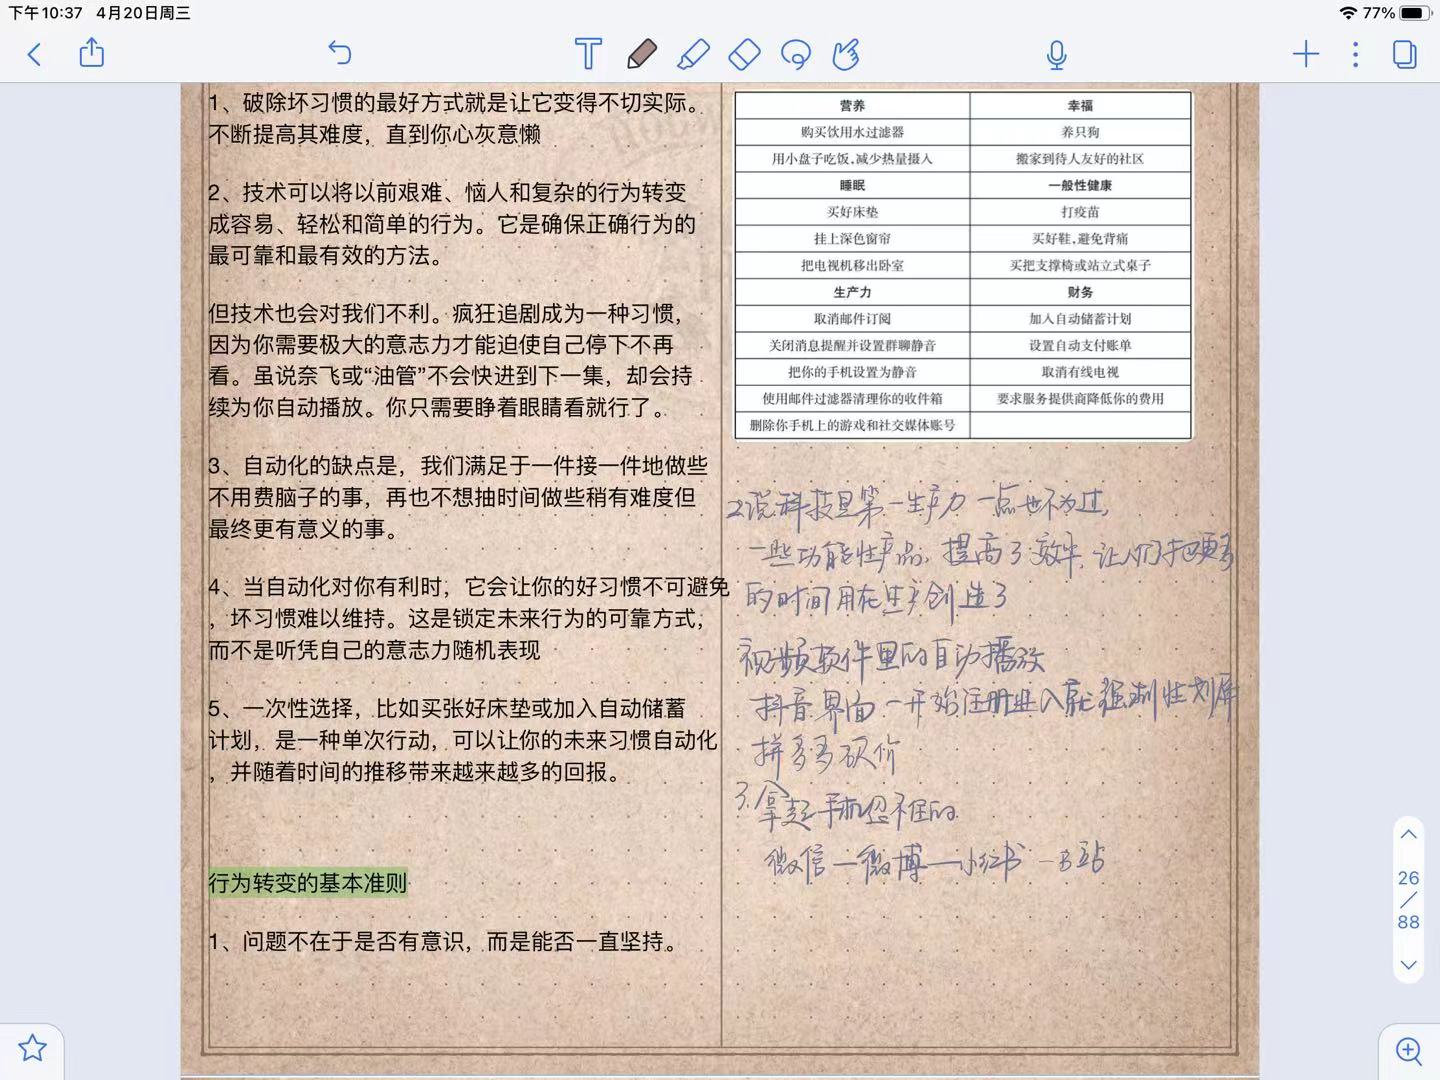 下午10:37 4月20日周三
77%
1、破除坏习惯的最好方式就是让它变得不切实际。
不断提高其难度，直到你心灰意懒
2、技术可以将以前艰难、恼人和复杂的行为转变
成容易、轻松和简单的行为。它是确保正确行为的
最可靠和最有效的方法。
但技术也会对我们不利。疯狂追剧成为一种习惯，
因为你需要极大的意志力才能迫使自己停下不再
看。虽说奈飞或“油管”不会快进到下一集，却会持
续为你自动播放。你只需要睁着眼睛看就行了。
3、自动化的缺点是，我们满足于一件接一件地做些
不用费脑子的事，再也不想抽时间做些稍有难度但
最终更有意义的事。
4、当自动化对你有利时，它会让你的好习惯不可避免
，坏习惯难以维持。这是锁定未来行为的可靠方式，
而不是听凭自己的意志力随机表现
5、一次性选择，比如买张好床垫或加入自动储蓄
计划，是一种单次行动，可以让你的未来习惯自动化
，并随着时间的推移带来越来越多的回报。
行为转变的基本准则
1、问题不在于是否有意识，而是能否一直坚持。
营养 幸福
购买饮用水过滤器 养只狗
用小盘子吃饭,减少热量摄入 搬家到待人友好的社区
睡眠 一般性健康
买好床垫 打疫苗
挂上深色窗帘 买好鞋,避免背痛
把电视机移出卧室 买把支撑椅或站立式桌子
生产力 财务
取消邮件订阅 加入自动储蓄计划
关闭消息提醒并设置群聊静音 设置自动支付账单
把你的手机设置为静音 取消有线电视
使用邮件过滤器清理你的收件箱 要求服务提供商降低你的费用
删除你手机上的游戏和社交媒体账号
2.说科技是第一生产力 一点也不为过,
一些功能性产品, 提高了效率, 让人们把更多
的时间用在生产创造了
视频软件里的自动播放
抖音界面一开始注册进入就强制性划屏
拼多多砍价
3.拿起手机忍不住的.
微信—微博—小红书—B站
26
88